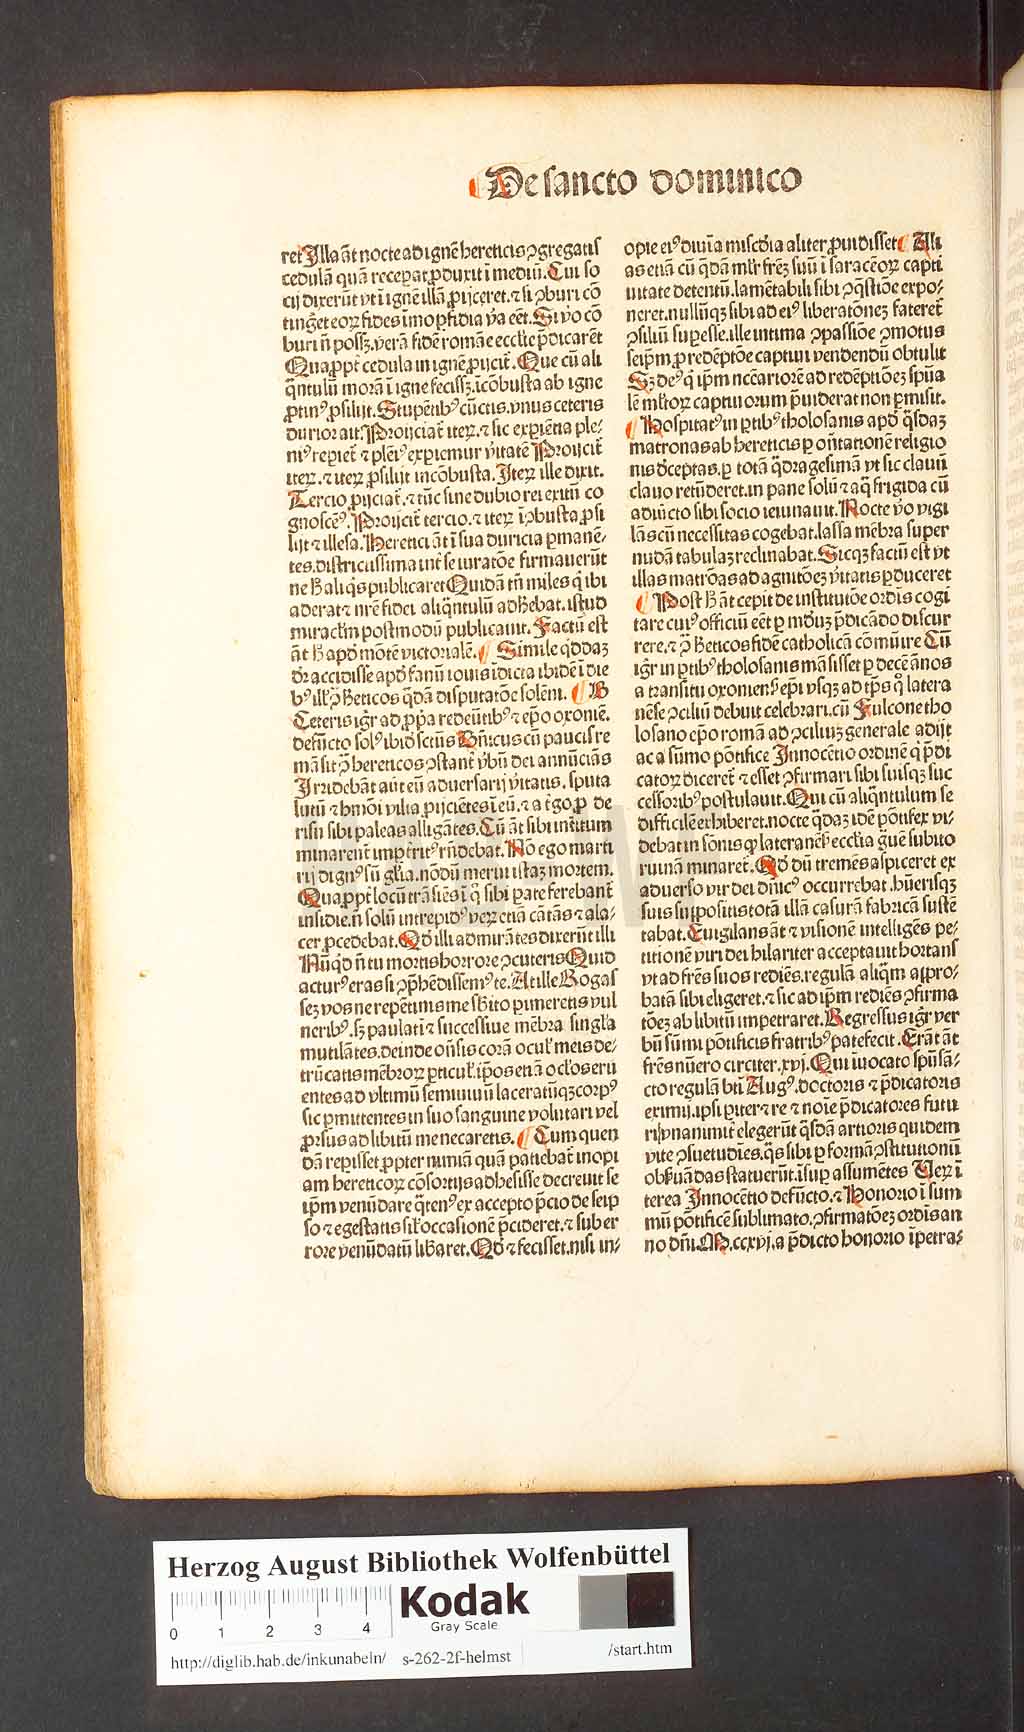 De sancto dominico
ret Illa āt nocte ad ignē hereticis ɔgregatis
cedulā quā receꝑat ꝓduxit ī mediū. Cui so
cij dixerūt vt ī ignē illā ꝓijceret. ⁊ si ɔburi cō
tinḡet eoꝝ fides īmo ꝑfidia v̄a eēt. Si v̄o cō
buri n̄ possꝫ. verā fidē romāe ecclie p̄dicarēt
Quaꝓpt̄ cedula in ignē ꝓijcit̄. Que cū ali
q̄ntulū morā ī igne fecissꝫ. īcōbusta ab igne
ꝓtinꝰ ꝓsilijt. Stupētibꝰ cūctis. vnus ceteris
durior ait. Proijciat̄ iteꝝ. ⁊ sic expiētia ple-
niꝰ reꝑiet̄ ⁊ pleniꝰ experimur v̄itatē Proijcit̄
iteꝝ. ⁊ iteꝝ ꝓsilijt incōbusta. Iteꝝ ille dixit.
Tercio ꝓijciat̄. ⁊ tūc sine dubio rei exitū co
gnoscēꝰ. Proijcit̄ tercio. ⁊ iteꝝ īɔbusta ꝓsi
lijt ⁊ illesa. Heretici āt ī sua duricia ꝑmanē-
tes. districtissima int̄ se iuratōe firmauerūt
ne H̄ aliq̄s publicaret Quidā tn̄ miles q̄ ibi
aderat ⁊ nr̄e fidei aliq̄ntulū adH̄ebat. istud
miraclm̄ postmodū publicauit. Factū est
āt H̄ apd̄ mōtē victorialē. ¶ Simile qđdaꝫ
dr̄ accidisse apđ fanū iouis īdicta ibidē ī die
bꝰ ill̓ ɔ̄ H̄eticos q̄dā disputatōe solēni. ¶ H̄
Ceteris igr̄ ad ꝓp̄a redeūtibꝰ ⁊ ep̄o oxoniē.
defūcto solꝰ ibiđ sctūs Dn̄icus cū paucis re
māsit ɔ̄ hereticos ɔstant̄ v̄bū dei annūcians
Irridebāt aut eū aduersarij v̄itatis. sputa
lutū ⁊ hm̄oi vilia ꝓijciētes ī eū. ⁊ a t̄go ꝓ de
risu sibi paleas alligātes. Cū āt sibi int̄itum
minarent̄ imꝑt̄ritꝰ rn̄debat. Nō ego marti
rij dignꝰ sū gl̄ia. nōdū merui istaꝫ mortem.
Quaꝓpt̄ locū trāsiēs ī q̄ sibi ꝑate ferebant̄
insidie. n̄ solū intrepidꝰ veꝝ etiā cātās ⁊ ala-
cer ꝓcedebat. Qđ illi admirātes dixerūt illi
Nūqđ n̄ tu mortis horrore ɔcuteris Quid
acturꝰ eras si ɔp̄hēdissemꝰ te. At ille Rogas
seꝫ vos ne repētinis me sb̄ito ꝑimeretis vul
neribꝰ. sꝫ paulati̅ ⁊ successiue mēbra singl̄a
mutilātes. deinde on̄sis corā ocul̓ meis de-
trūcatis mēbroꝝ ꝑticul̓. ip̄os etiā ocl̓os eru
entes ad vltimū semiuiuū laceratūqꝫ corpꝰ
sic ꝑmittentes in suo sanguine volutari vel
ꝓrsus ad libitū me necaretis. ¶ Cum quen
dā reꝑisset. ꝓpter nimiā quā patiebat̄ inopi
am hereticoꝝ cōsortijs adhesisse decreuit se
ip̄m venūdare q̄tenꝰ ex accepto p̄cio de seip
so ⁊ egestatis sil̓ occasionē p̄cideret. ⁊ sub er
rore venūdatū lib̄aret. Qđ ⁊ fecisset. nisi in-
opie eiꝰ diuīa miscđia aliter ꝓuidisset ¶ Ali
as etiā cū q̄dā mlr̄ frēꝫ suū ī saracēoꝝ capti
uitate detentū. lamētabili sibi ɔq̄stiōe expo-
neret. nullūqꝫ sibi ad eiꝰ liberatōneꝫ fateret̄
ɔsiliū suꝑesse. ille intima ɔpassiōe ɔmotus
seip̄m ꝓ redēptōe captiui vendendū obtulit
Sꝫ deꝰ q̄ ip̄m nc̄cariorē ad redēptiōeꝫ spūa
lē mltoꝝ captiuorum p̄uiderat non ꝑmisit.
¶ Hospitatꝰ in ꝑtibꝰ tholosanis apđ q̄sdaꝫ
matronas ab hereticis ꝑ on̄tationē religio
nis dceptas. ꝑ totā q̄dragesimā vt sic clauū
clauo retūderet. in pane solū ⁊ aq̄ frigida cū
adiūcto sibi socio ieiunauit. Nocte v̄o vigi
lās cū necessitas cogebat. lassa mēbra super
nudā tabulaꝫ reclinabat. Sicqꝫ factū est vt
illas matrōas ad agnitōeꝫ v̄itatis ꝑduceret
¶ Post H̄ āt cepit de institutōe ordīs cogi
tare cuiꝰ officiū eēt ꝑ mūduꝫ p̄dicādo discur
rere. ⁊ ɔ̄ H̄eticos fidē catholicā cōmūire Cū
igr̄ in ꝑtibꝰ tholosanis māsisset ꝑ decē ānos
a transitu oxoniensꝭ ep̄i vsqꝫ ad tp̄s q̄ latera
nēse ɔciliū debuit celebrari. cū Fulcone tho
losano ep̄o romā ad ɔciliuꝫ generale adijt
ac a sūmo pōtifice Innocētio ordinē q̄ p̄di
catoꝝ diceret̄ ⁊ esset ɔfirmari sibi suisqꝫ suc
cessoribꝰ postulauit. Qui cū aliq̄ntulum se
difficilē exhiberet. nocte q̄daꝫ idē pōtifex vi-
debat in sōnis ꝙ lateranēsꝭ ecclīa ḡuē subito
ruinā minaret̄. Qđ dū tremēs aspiceret ex
aduerso vir dei dn̄icꝰ occurrebat. hūerisqꝫ
suis suppositis totā illā casurā fabricā sustē
tabat. Euigilans āt ⁊ visionē intelligēs pe-
titionē viri dei hilariter acceptauit hortans
vt ad frēs suos rediēs. regulā aliq̄m appro-
batā sibi eligeret. ⁊ sic ad ip̄m rediēs ɔfirma
tōeꝫ ab libitū impetraret. Regressus igr̄ ver
bū sūmi pontificis fratribꝰ patefecit. Erāt āt
frēs nūero circiter. xvj. Qui īuocato spū sā-
cto regulā bti Augꝰ. doctoris ⁊ p̄dicatoris
eximij. ipsi ꝑiter ⁊ re ⁊ noīe p̄dicatores futu
ri vnanimit̄ elegerūt q̄sdā artioris quidem
vite ɔsuetudīes. q̄s sibi ꝑ formā ɔstitutionū
obẜuādas statuerūt. īsuꝑ assumētes Ueꝝ ī
terea Innocētio defūcto. ⁊ Honorio ī sum
mū pōtificē sublimato. ɔfirmatōeꝫ ordīs an
no dn̄i. M. ccxvj. a p̄dicto honorio īpetra-
Herzog August Bibliothek Wolfenbüttel
0 1 2 3 4
Kodak
Gray Scale
http://diglib.hab.de/inkunabeln/ s-262-2f-helmst /start.htm